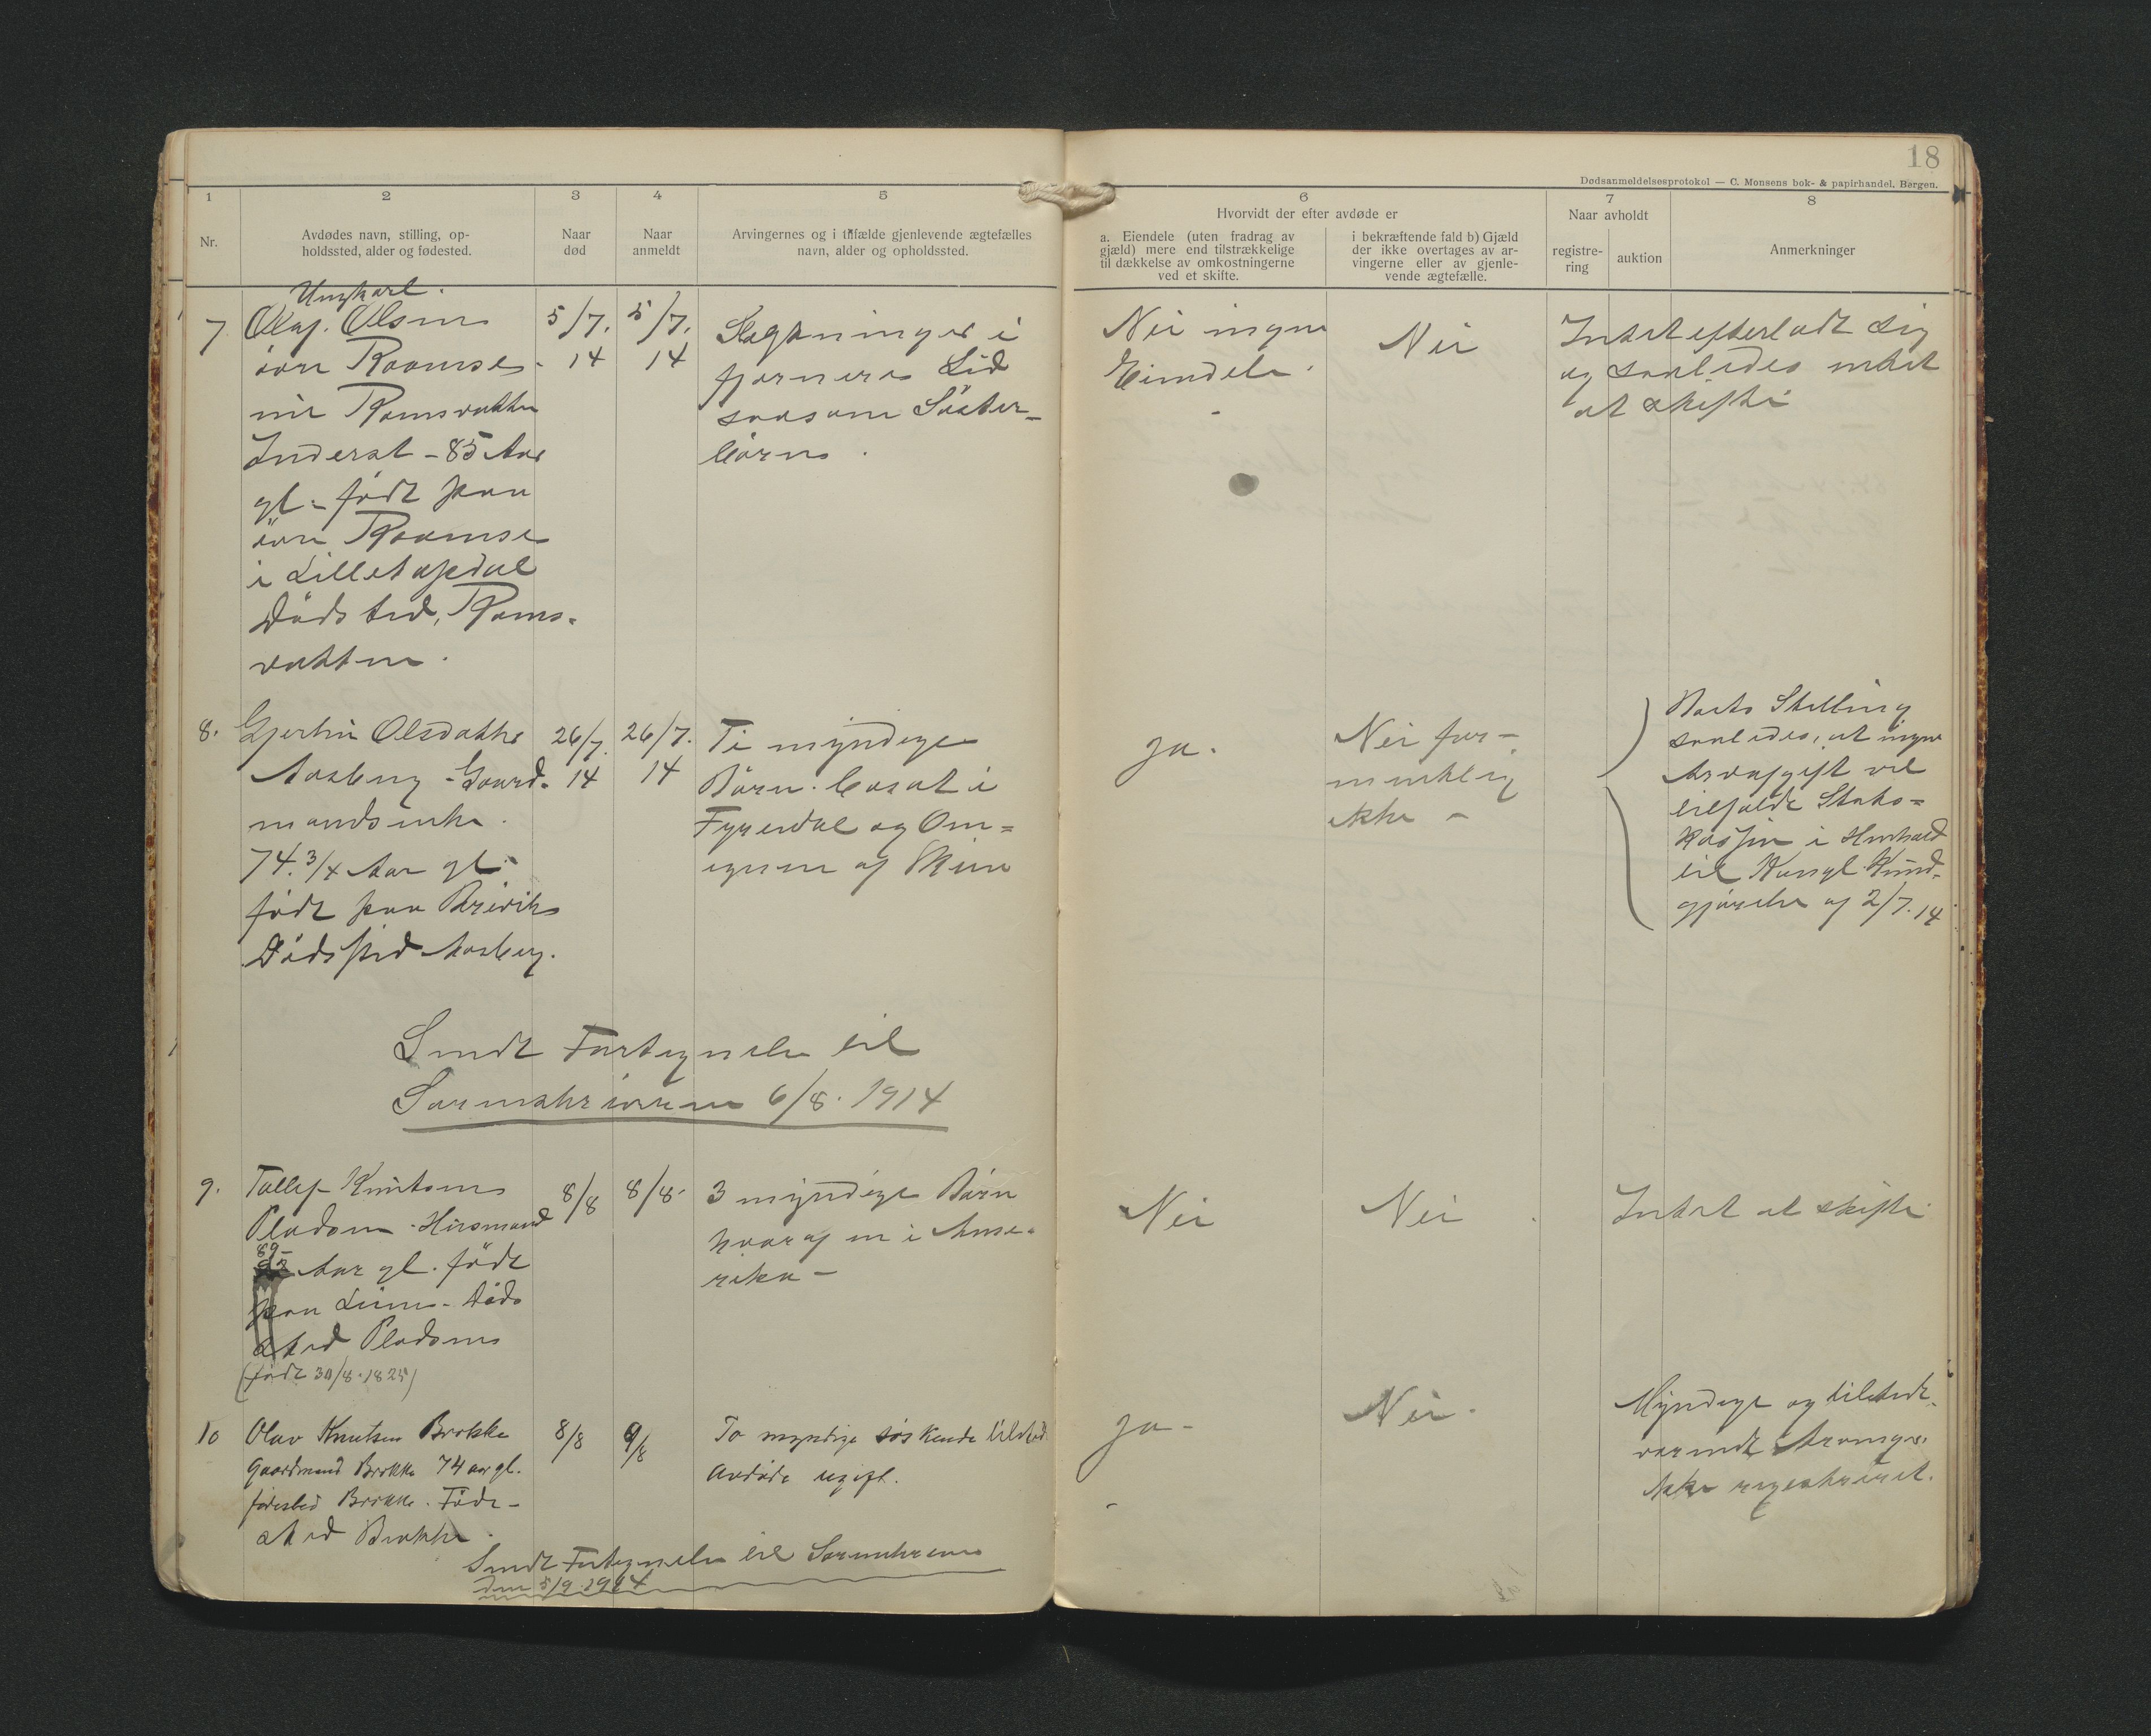 18
Dødsanmeldelsesprotokol — C. Monsens bok- & papirhandel, Bergen.
1
2
3
4
5
6
7
8
Nr.
Avdødes navn, stilling, op-
holdssted, alder og fødested.
Naar
død
Naar
anmeldt
Arvingernes og i tilfælde gjenlevende ægtefælles
navn, alder og opholdssted.
Hvorvidt der efter avdøde er
a. Eiendele (uten fradrag av
gjæld) mere end tilstrækkelige
til dækkelse av omkostningerne
ved et skifte.
i bekræftende fald b) Gjæld
der ikke overtages av ar-
vingerne eller av gjenle-
vende ægtefælle.
Naar avholdt
registre-
ring
auktion
Anmerkninger
Ungkarl.
7 Olaf Olsen
övre Roamse
Ramsvatten
Inderst - 85 Aar
gl. - födt paa
övre Roamse
i
Döds sted, Rams-
vatten.
5/7.
14
5/7.
14
Slægtninger i
fjernere Led
saasom Söster-
börn.
Nei ingen
Eiendele.
Nei
Intet efterladt sig
og saaledes intet
at skifte
8. Olsdatter
Aasberg - Gaard-
mandsenke.
74. 3/4 Aar gl.
födt paa
Dödssted Aasberg.
26/7.
14
26/7.
14
Ti myndige
Börn. bosat i
Fyresdal og Om-
egnen af Skien
ja.
Nei for-
mentlig
ikke -
Boets Stilling
saaledes, at ingen
Arvafgift vil
tilfalde Stats-
kassen i Henhold
til Kongl. Kund-
gjörelse af 2/7. 14
Sendt Fortegnelse til
Sorenskriveren 6/8. 1914
9. Tallef Knutsen
Pladsen - Husmand
89-
Aar gl. födt
paa - Döds
sted Pladsen
(födt 30/8. 1825)
8/8
8/8.
3 myndige Börn
hvoraf en i Ame-
rika -
Nei
Nei
Intet at skifte
10 Olav Knutsen Brokke
Gaardmand Brokke 74 aar gl.
fødested Brokke. Döds-
sted Brokke.
8/8
9/8
To myndige søskende tilsted.
Avdøde ugift.
ja -
Nei.
Myndige og tilstede-
værende Arvinger.
Ikke registreret.
Sendt Fortegnelse til Sorenskriveren
den 5/9. 1914